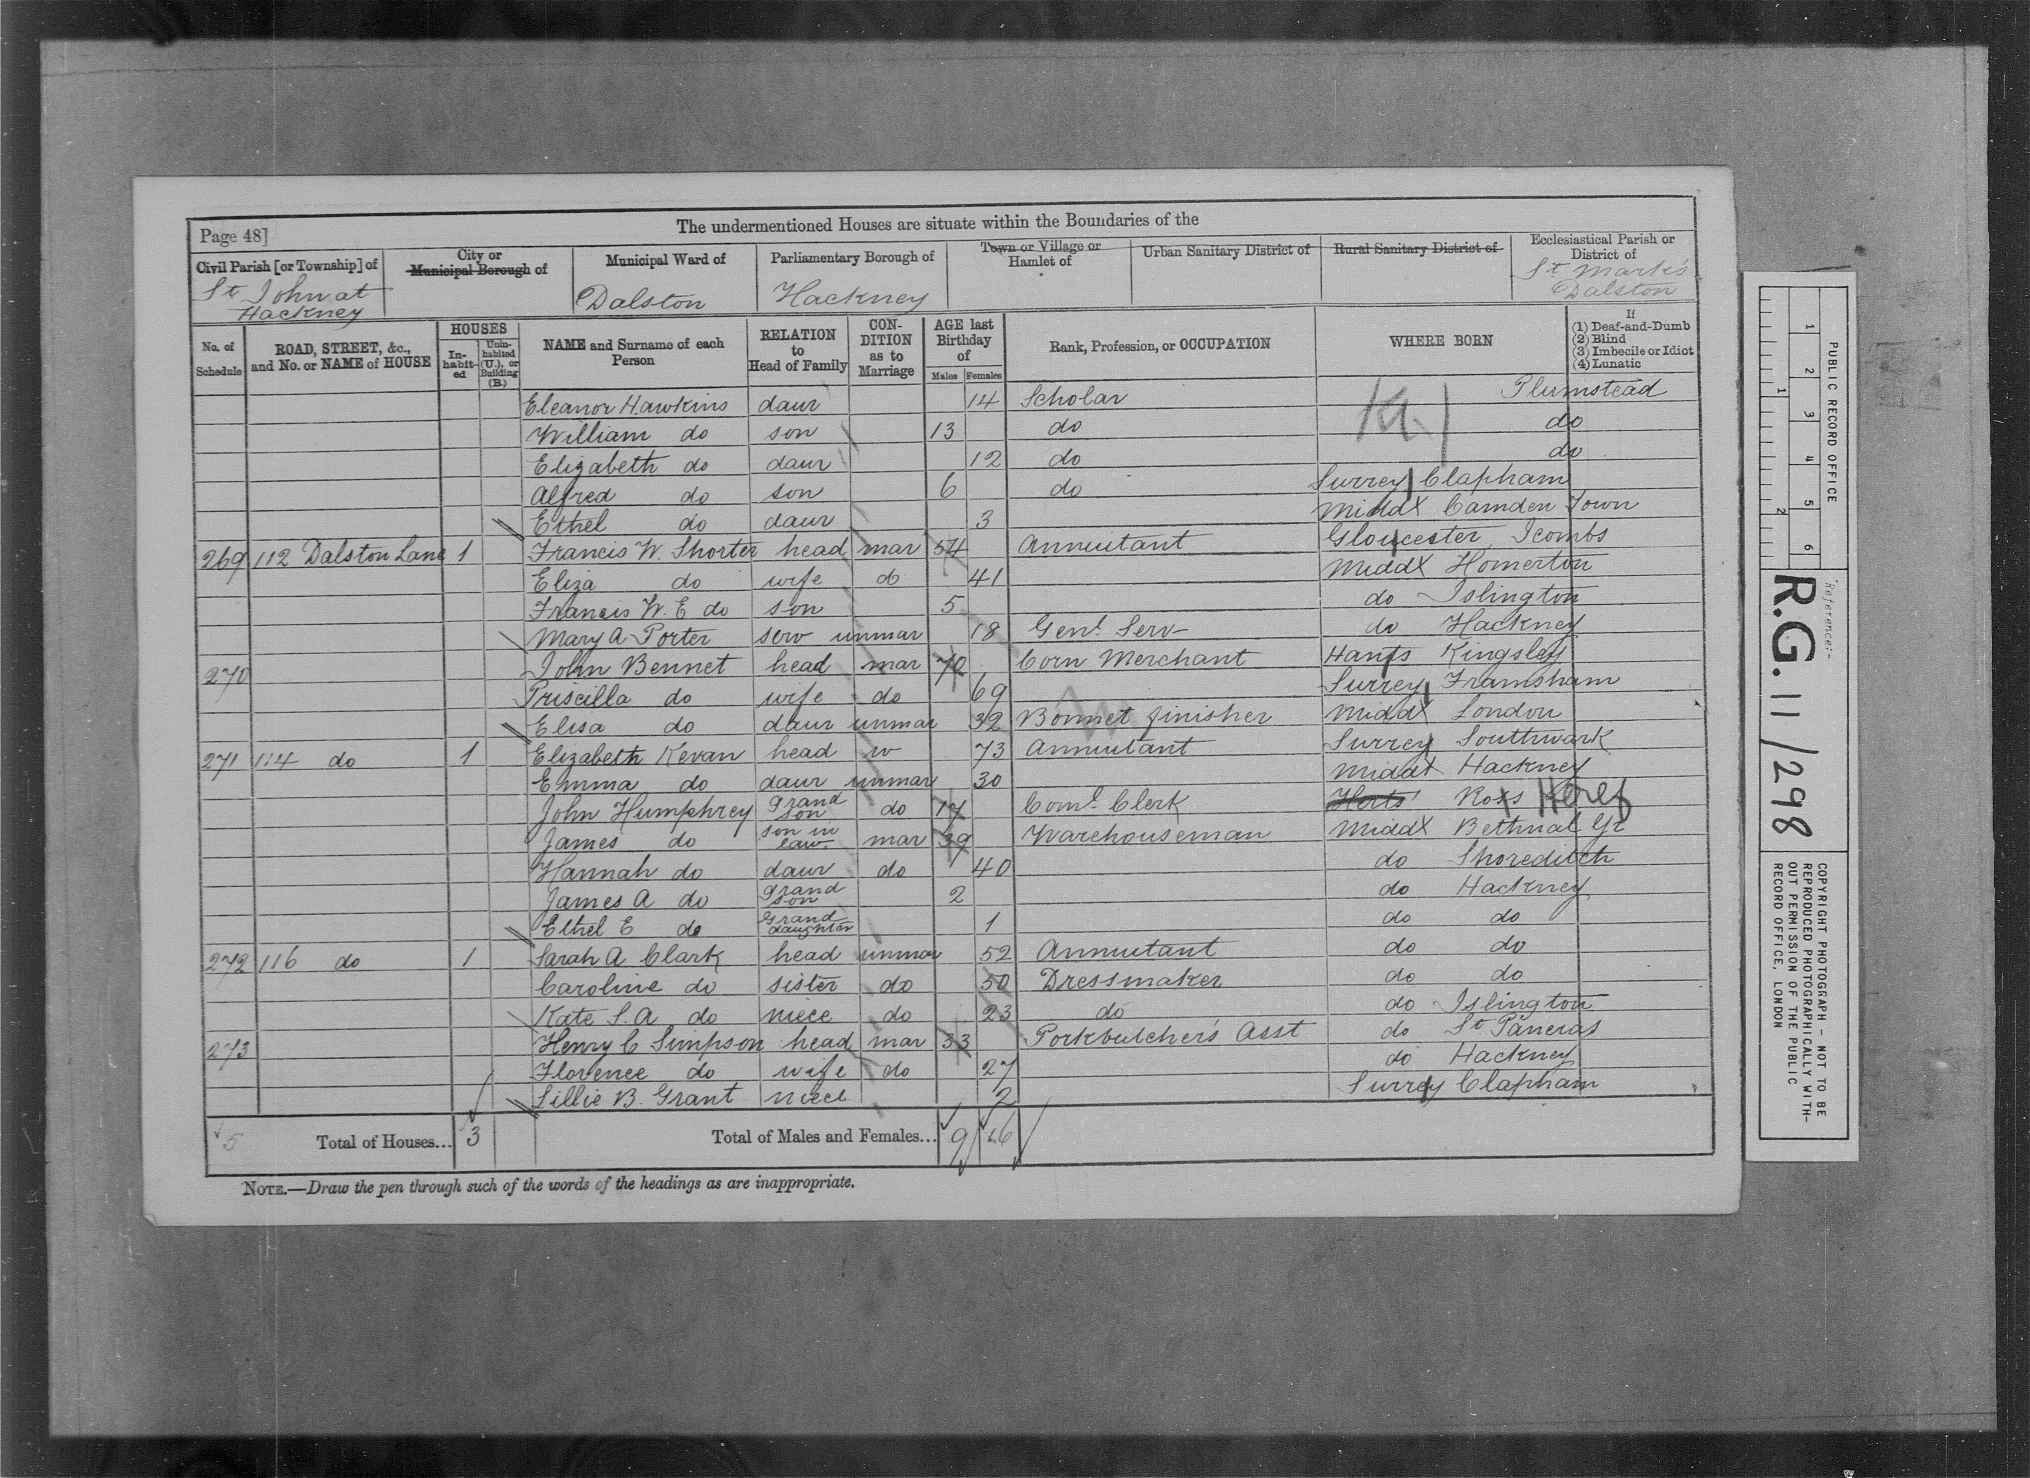 Page 48]
The undermentioned Houses are situate within the Boundaries of the
Civil Parish [or Township] of
City or Municipal Borough of
Municipal Ward of
Parliamentary Borough of
Town or Village or Hamlet of
Urban Sanitary District of
Rural Sanitary District of
Ecclesiastical Parish or District of
St. John at Hackney
Dalston
Hackney
St. Mark's Dalston
No. of Schedule
ROAD, STREET, &c., and No. or NAME of HOUSE
HOUSES
In-habit-ed
Unin-habited (U.), or Building (B.)
NAME and Surname of each Person
RELATION to Head of Family
CON-DITION as to Marriage
AGE last Birthday of
Males Females
Rank, Profession, or OCCUPATION
WHERE BORN
If
(1) Deaf-and-Dumb
(2) Blind
(3) Imbecile or Idiot
(4) Lunatic
Eleanor Hawkins daur 14 Scholar Plumstead
William do son 13 do do
Elizabeth do daur 12 do do
Alfred do son 6 do Surrey Clapham
Ethel do daur 3 Middx Camden Town
269 112 Dalston Lane 1 Francis W. Shorter head mar 54 Annuitant Gloucester Icombs
Eliza do wife do 41 Middx Homerton
Francis W. E do son 5 do Islington
Mary A Porter serv unmar 18 Genl. Serv do Hackney
270 John Bennet head mar 70 Corn Merchant Hants Kingsley
Priscilla do wife do 69 Surrey Framsham
Elisa do daur unmar 32 Bonnet finisher Middx London
271 114 do 1 Elizabeth Kevan head w 73 Annuitant Surrey Southwark
Emma do daur unmar 30 Middx Hackney
John Humphrey grand son do 17 Coml. Clerk Herts Ross Heref
James do son in law mar 39 Warehouseman Middx Bethnal Gr
Hannah do daur do 40 do Shoreditch
James A do grand son 2 do Hackney
Ethel E do Grand daughter 1 do do
272 116 do 1 Sarah A Clark head unmar 52 Annuitant do do
Caroline do sister do 50 Dressmaker do do
Kate S. A do niece do 23 do do Islington
273 Henry C Simpson head mar 33 Porkbutcher's Asst do St Pancras
Florence do wife do 27 do Hackney
Lillie B. Grant niece 2 Surrey Clapham
5 Total of Houses... 3 Total of Males and Females... 9 16
NOTE.—Draw the pen through such of the words of the headings as are inappropriate.
PUBLIC RECORD OFFICE
1 2 3 4 5 6
1 2
Reference:-
R.G. 11/298
COPYRIGHT PHOTOGRAPH - NOT TO BE
REPRODUCED PHOTOGRAPHICALLY WITH-
OUT PERMISSION OF THE PUBLIC
RECORD OFFICE, LONDON